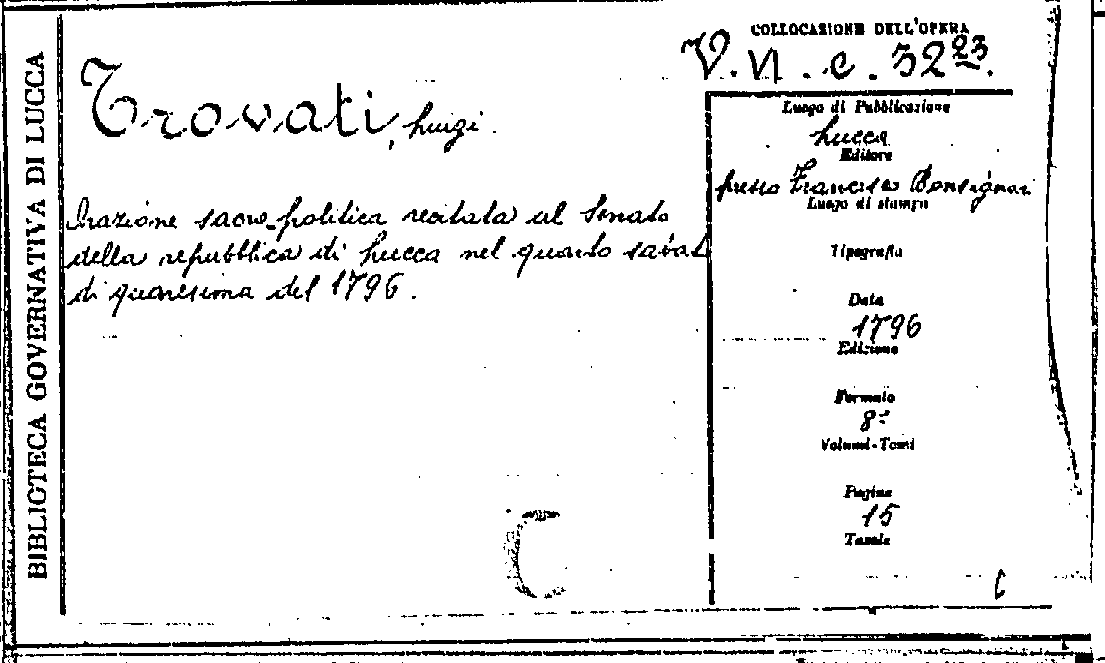 BIBLIOTECA GOVERNATIVA DI LUCCA
COLLOCAZIONE DELL'OPERA
V. VI. c. 32 23.
Trovati, Luigi.
Orazione sacro-politica recitata al Senato
della repubblica di Lucca nel quarto sabat
di quaresima del 1796.
Luogo di Pubblicazione
Lucca
Editore
presso Francesco Bonsignori
Luogo di stampa
Tipografia
Data
1796
Edizione
Formato
8º
Volumi-Tomi
Pagine
15
Tavole
C
C